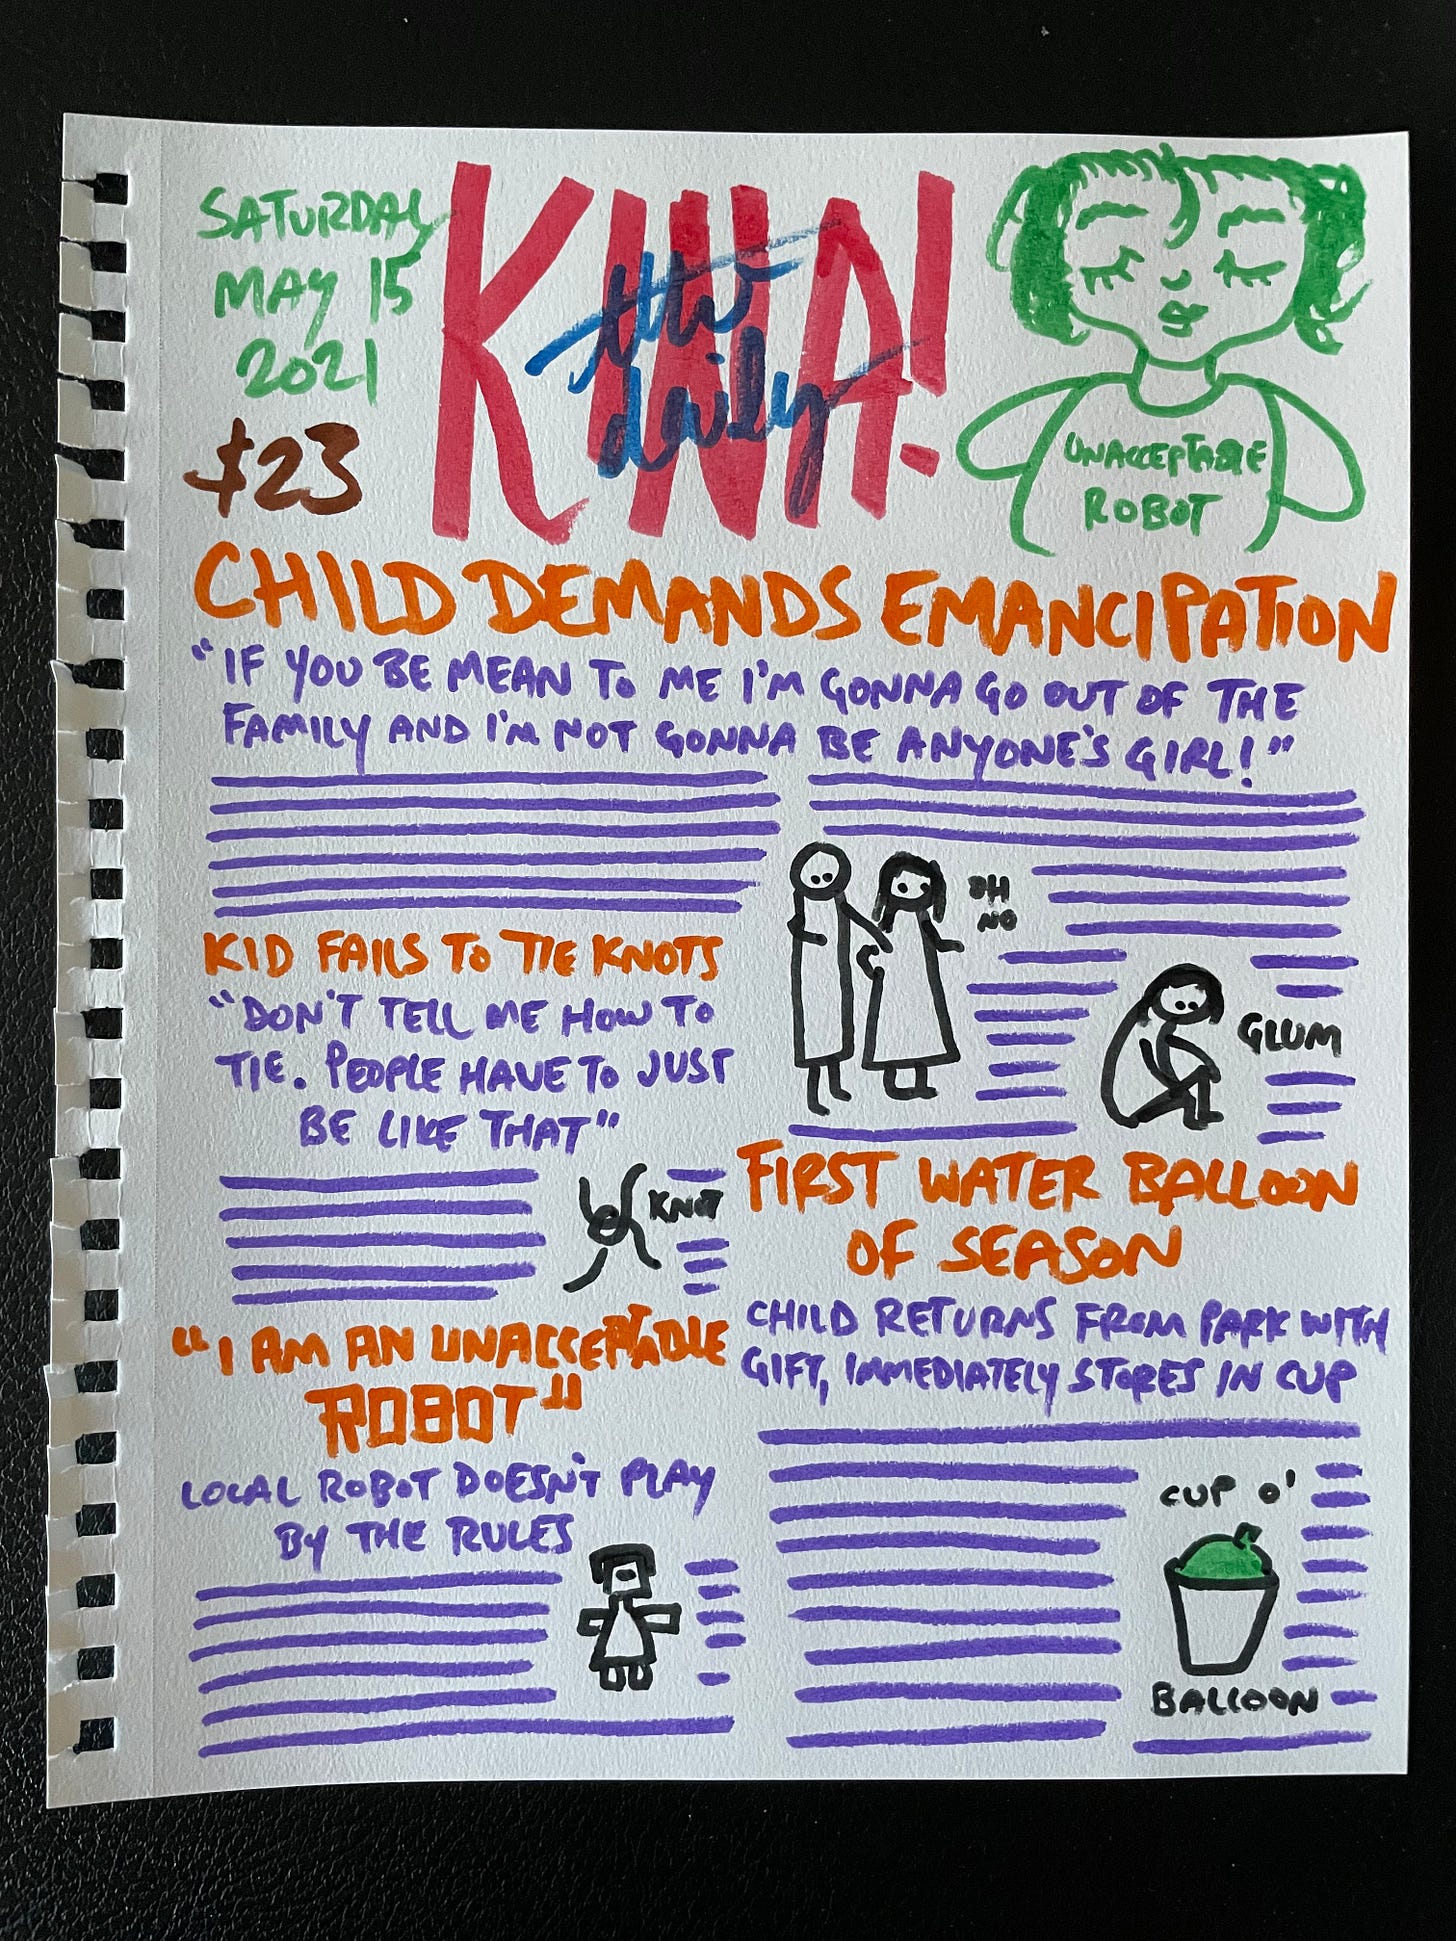 SATURDAY
MAY 15
2021
$23
the
daily
KINA!
UNACCEPTABLE
ROBOT
CHILD DEMANDS EMANCIPATION
"IF YOU BE MEAN TO ME I'M GONNA GO OUT OF THE
FAMILY AND I'M NOT GONNA BE ANYONE'S GIRL!"
OH
NO
GLUM
KID FAILS TO TIE KNOTS
"DON'T TELL ME HOW TO
TIE. PEOPLE HAVE TO JUST
BE LIKE THAT"
KNOT
"I AM AN UNACCEPTABLE
ROBOT"
LOCAL ROBOT DOESN'T PLAY
BY THE RULES
FIRST WATER BALLOON
OF SEASON
CHILD RETURNS FROM PARK WITH
GIFT, IMMEDIATELY STORES IN CUP
CUP O'
BALLOON